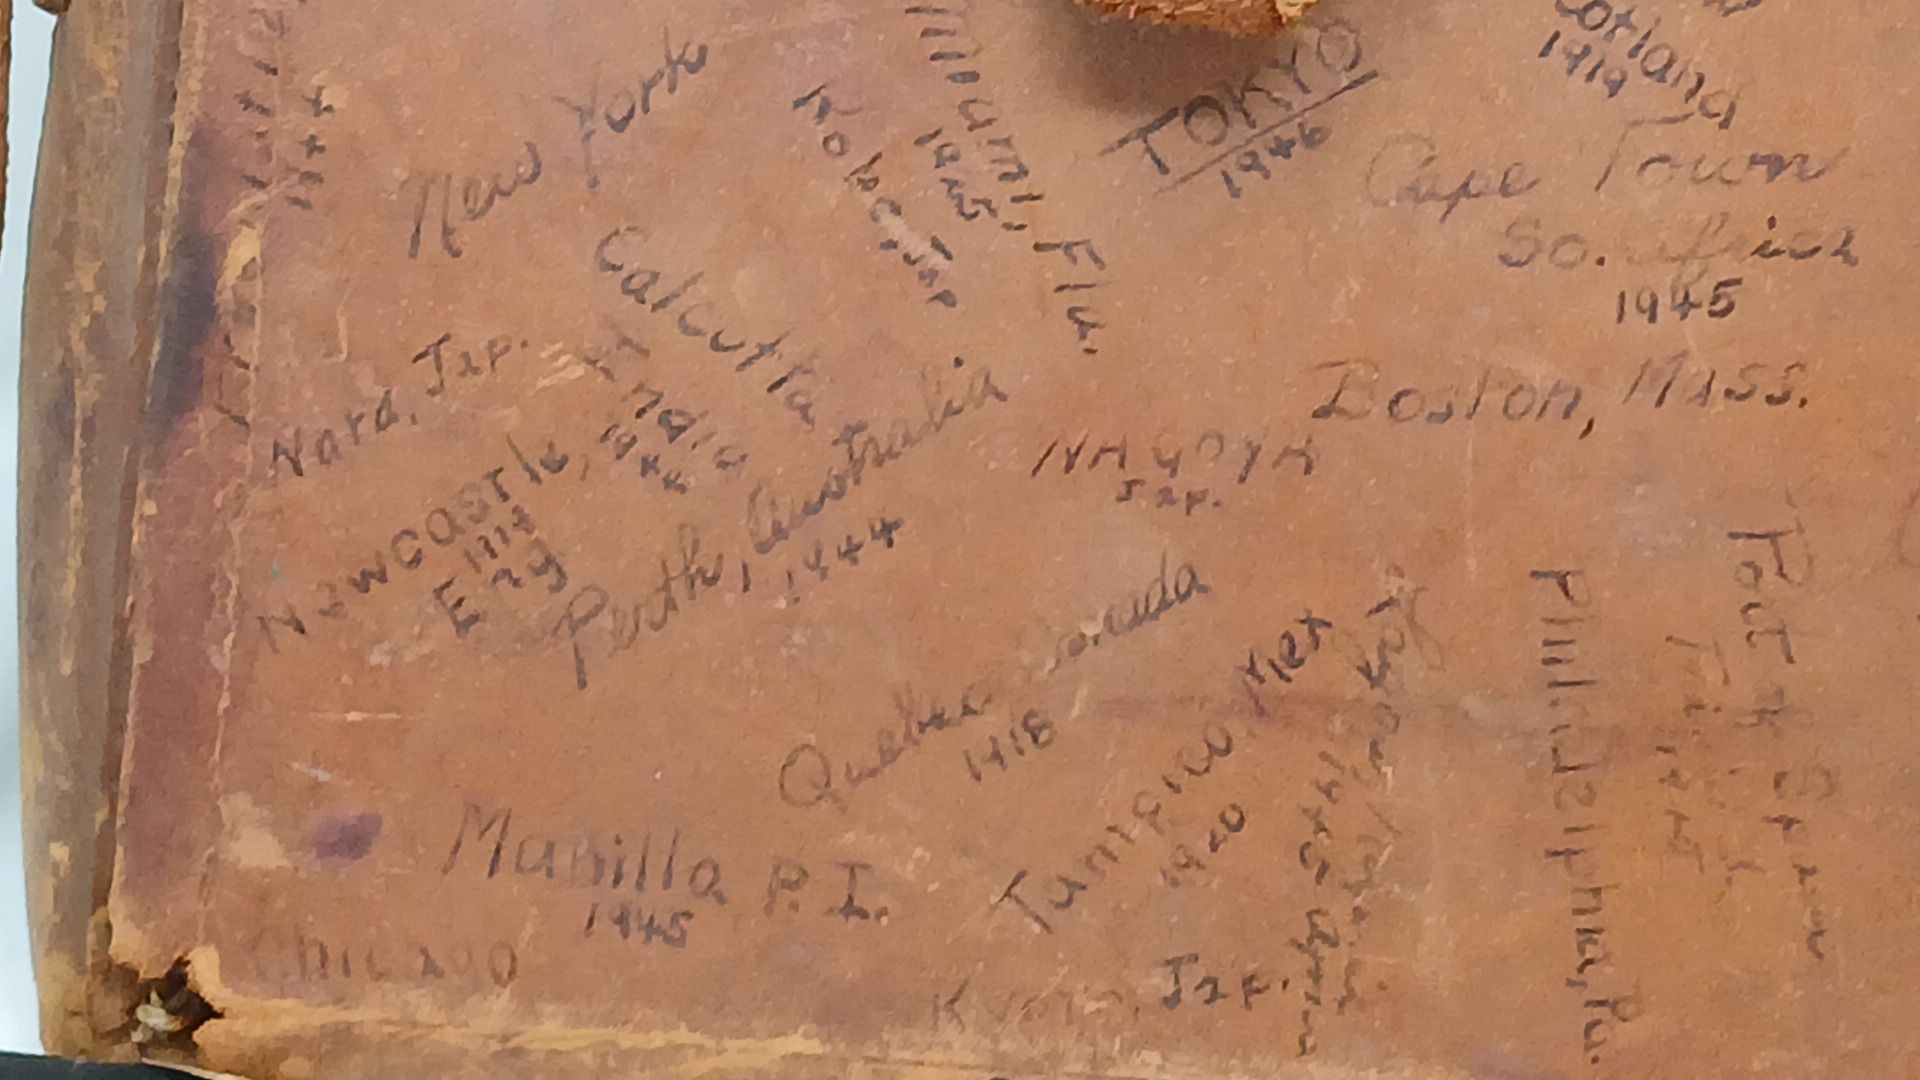 New York
Kobe, Jap
Miami, Fla.
1925
TOKYO
1946
1919
Cape Town
So. Africa
1945
Calcutta
India
1944
Nara, Jap.
Boston, Mass.
NAGOYA
Jap.
Newcastle,
Eng
Perth, Australia
1944
Quebec Canada
1918
Tampico, Mex
1920
Yokohama
1945
Philadelphia, Pa.
Port of Spain
Manilla P. I.
1945
Chicago
Kyoto, Jap.